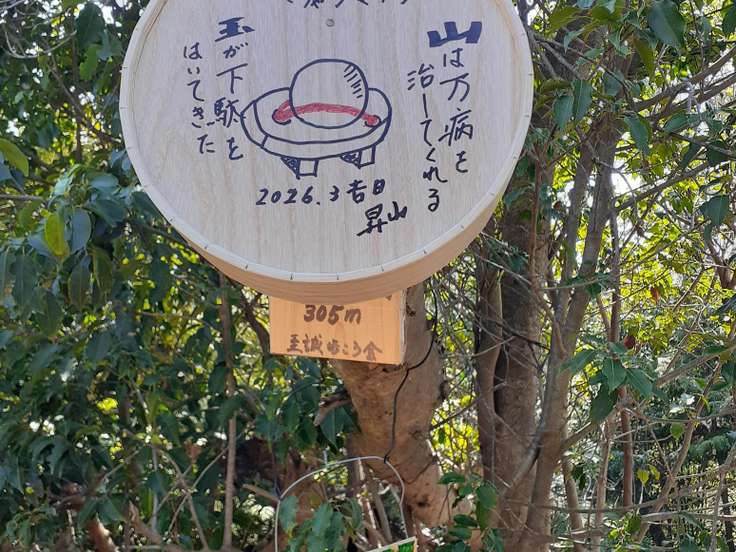 山は万病を
治してくれる
玉が下駄を
はいてきた
2026.3吉日
昇山
305m
至誠歩こう会